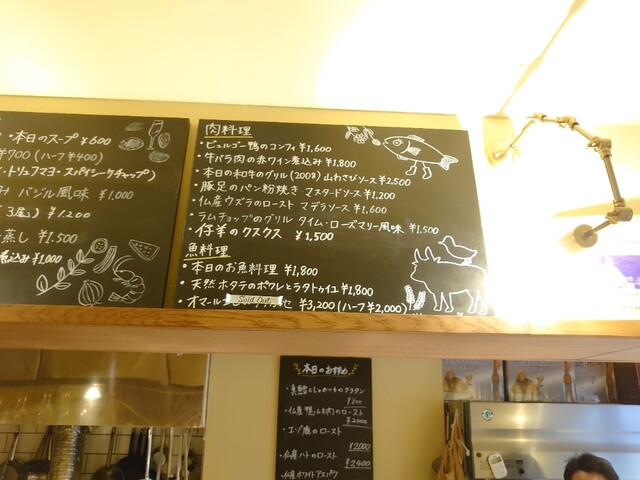 ・本日のスープ ¥600
¥700 (ハーフ ¥400)
・トリュフマヨ・スパイシーケチャップ)
み バジル風味 ¥1,000
(3尾) ¥1,200
蒸し ¥1,500
煮込み ¥1,000
肉料理
・ビュルゴー鴨のコンフィ ¥1,600
・牛バラ肉の赤ワイン煮込み ¥1,800
・本日の和牛のグリル(200g) 山わさびソース ¥2,500
・豚足のパン粉焼き マスタードソース ¥1,200
・仏産ウズラのロースト マデラソース ¥1,600
・ラムチョップのグリル タイム・ローズマリー風味 ¥1,500
・仔羊のクスクス ¥1,500
魚料理
・本日のお魚料理 ¥1,800
・天然ホタテのポワレとラタトゥイユ ¥1,800
・オマール Sold Out せ ¥3,200 (ハーフ ¥2,000)
本日のおすすめ
・真鱈としゃがいものグラタン
¥800
・仏産 鴨(ムネ肉)のロースト
¥2,000
・エゾ鹿のロースト
¥2,000
・仏産ハトのロースト
¥2,400
・仏産ホワイトアスパラ